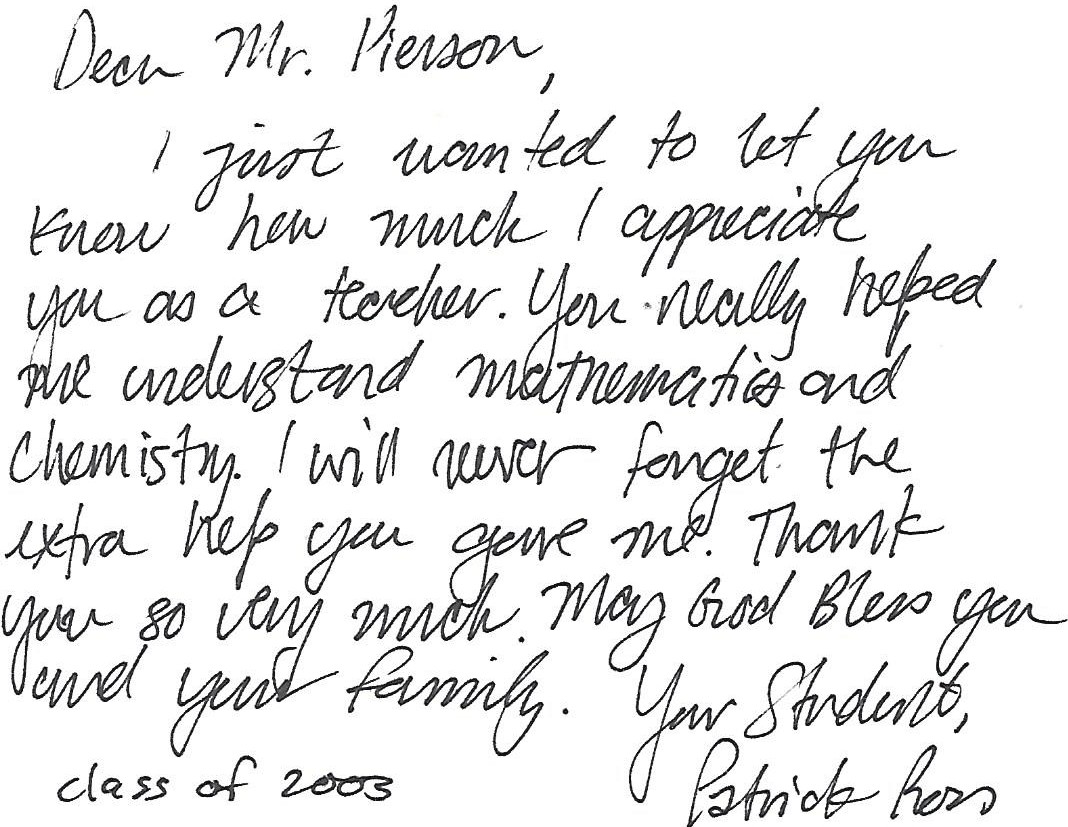 Dear Mr. Pierson,
I just wanted to let you
know how much I appreciate
you as a teacher. You really helped
me understand mathematics and
Chemistry. I will never forget the
extra help you gave me. Thank
you so very much. May God Bless you
and your family. Your Student,
class of 2003 Patrick Ross